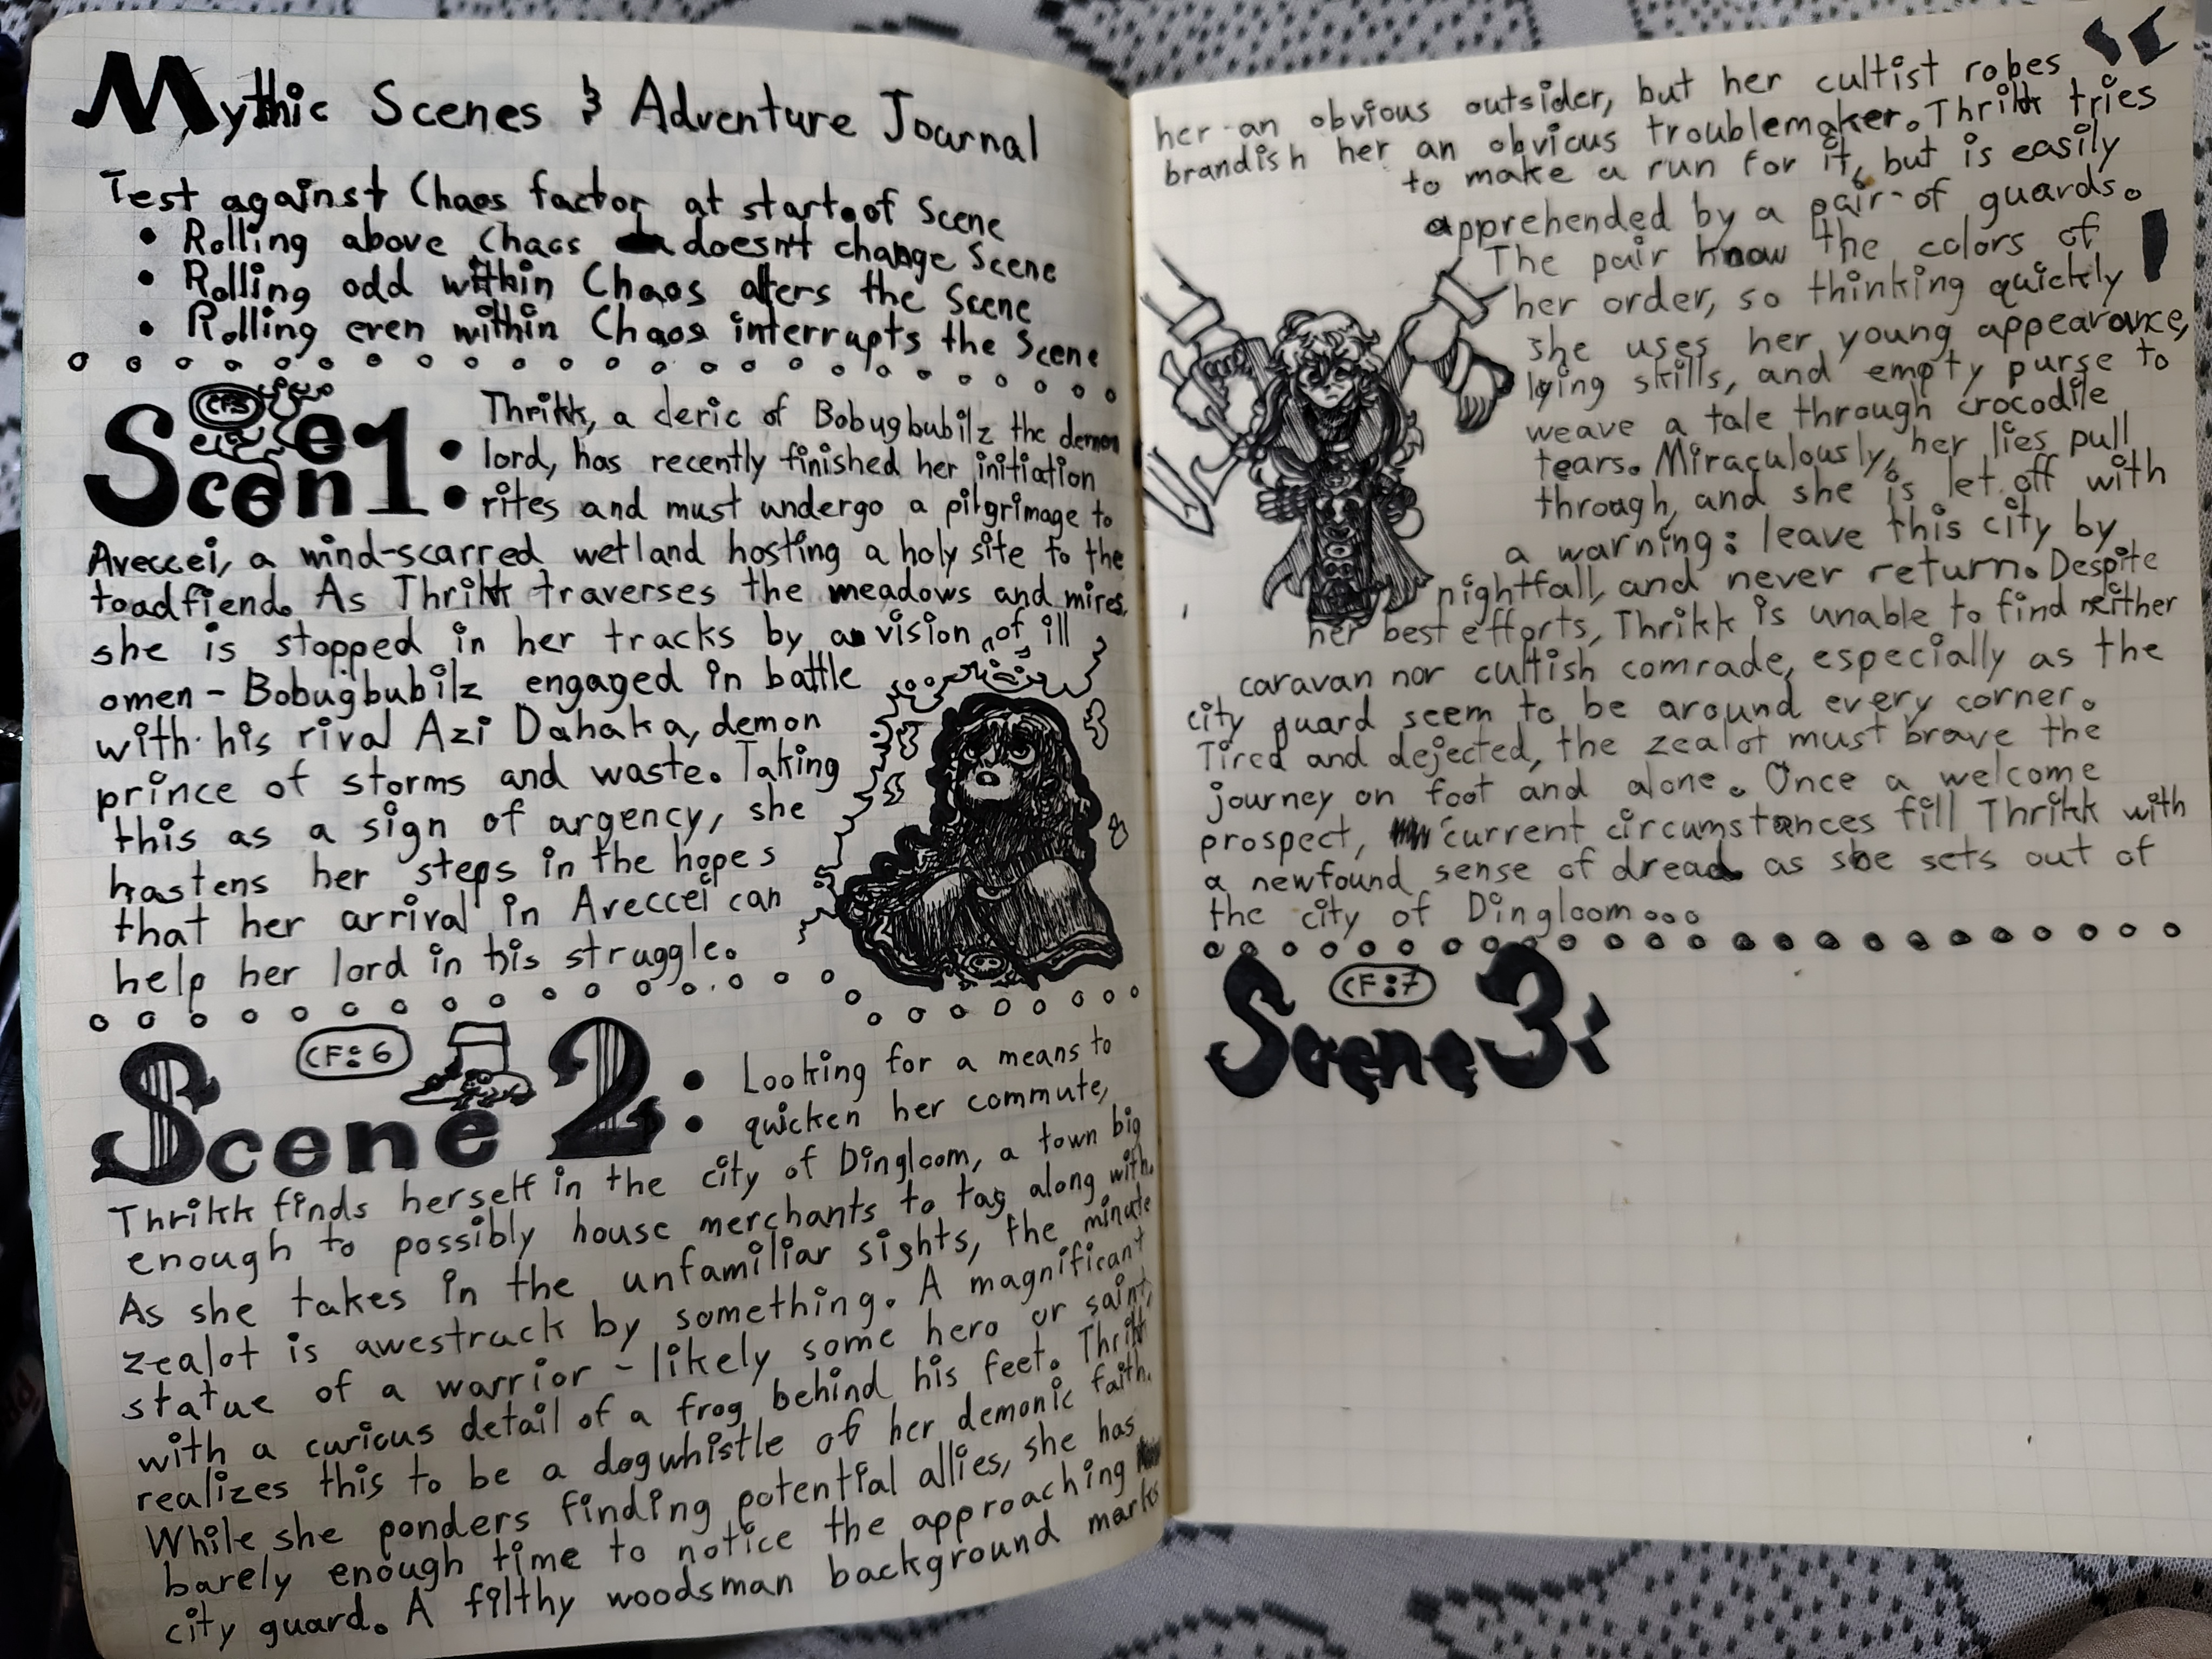 Mythic Scenes & Adventure Journal
Test against Chaos factor at start of Scene
• Rolling above Chaos doesn't change Scene
• Rolling odd within Chaos alters the Scene
• Rolling even within Chaos interrupts the Scene
CF:5
Scene 1:
Thrikk, a cleric of Bobugbubilz the demon
lord, has recently finished her initiation
rites and must undergo a pilgrimage to
Aveccei, a wind-scarred wetland hosting a holy site to the
toadfiend. As Thrikk traverses the meadows and mires,
she is stopped in her tracks by a vision of ill
omen - Bobugbubilz engaged in battle
with his rival Azi Dahaka, demon
prince of storms and waste. Taking
this as a sign of argency, she
hastens her steps in the hopes
that her arrival in Aveccei can
help her lord in his struggle.
CF: 6
Scene 2:
Looking for a means to
quicken her commute,
Thrikk finds herself in the city of Dingloom, a town big
enough to possibly house merchants to tag along with.
As she takes in the unfamiliar sights, the minute
zealot is awestruck by something. A magnificant
statue of a warrior - likely some hero or saint,
with a curious detail of a frog behind his feet. Thrikk
realizes this to be a dogwhistle of her demonic faith.
While she ponders finding potential allies, she has
barely enough time to notice the approaching
city guard. A filthy woodsman background marks
her an obvious outsider, but her cultist robes
brandish her an obvious troublemaker. Thrikk tries
to make a run for it, but is easily
apprehended by a pair of guards.
The pair know the colors of
her order, so thinking quickly
she uses her young appearance,
lying skills, and empty purse to
weave a tale through crocodile
tears. Miraculously, her lies pull
through, and she is let off with
a warning: leave this city by
nightfall, and never return. Despite
her best efforts, Thrikk is unable to find neither
caravan nor cultish comrade, especially as the
city guard seem to be around every corner.
Tired and dejected, the zealot must brave the
journey on foot and alone. Once a welcome
prospect, current circumstances fill Thrikk with
a newfound sense of dread as she sets out of
the city of Dingloom...
CF:7
Scene 3: